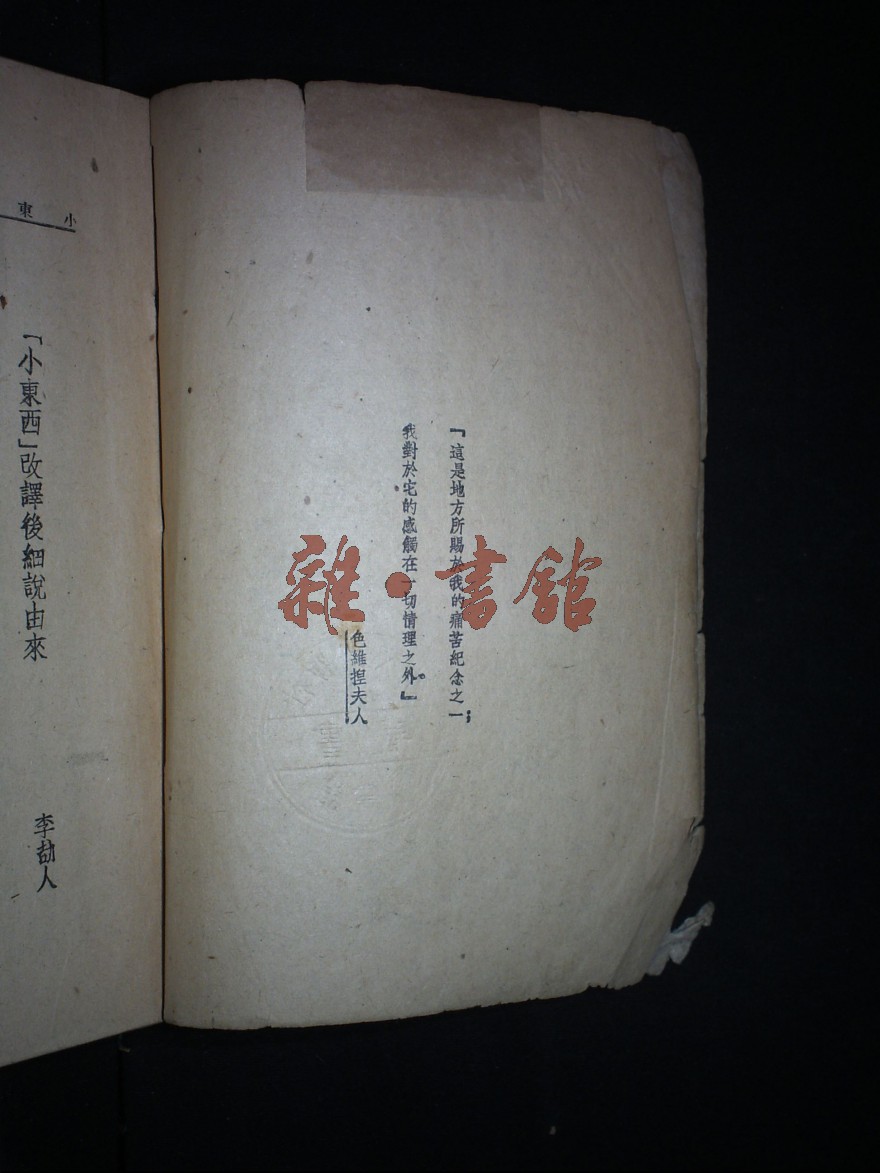 『這是地方所賜於我的痛苦紀念之一；
我對於宅的感觸在一切情理之外。』
色維揑夫人
雜·書館
小東
「小東西」改譯後細說由來
李劼人